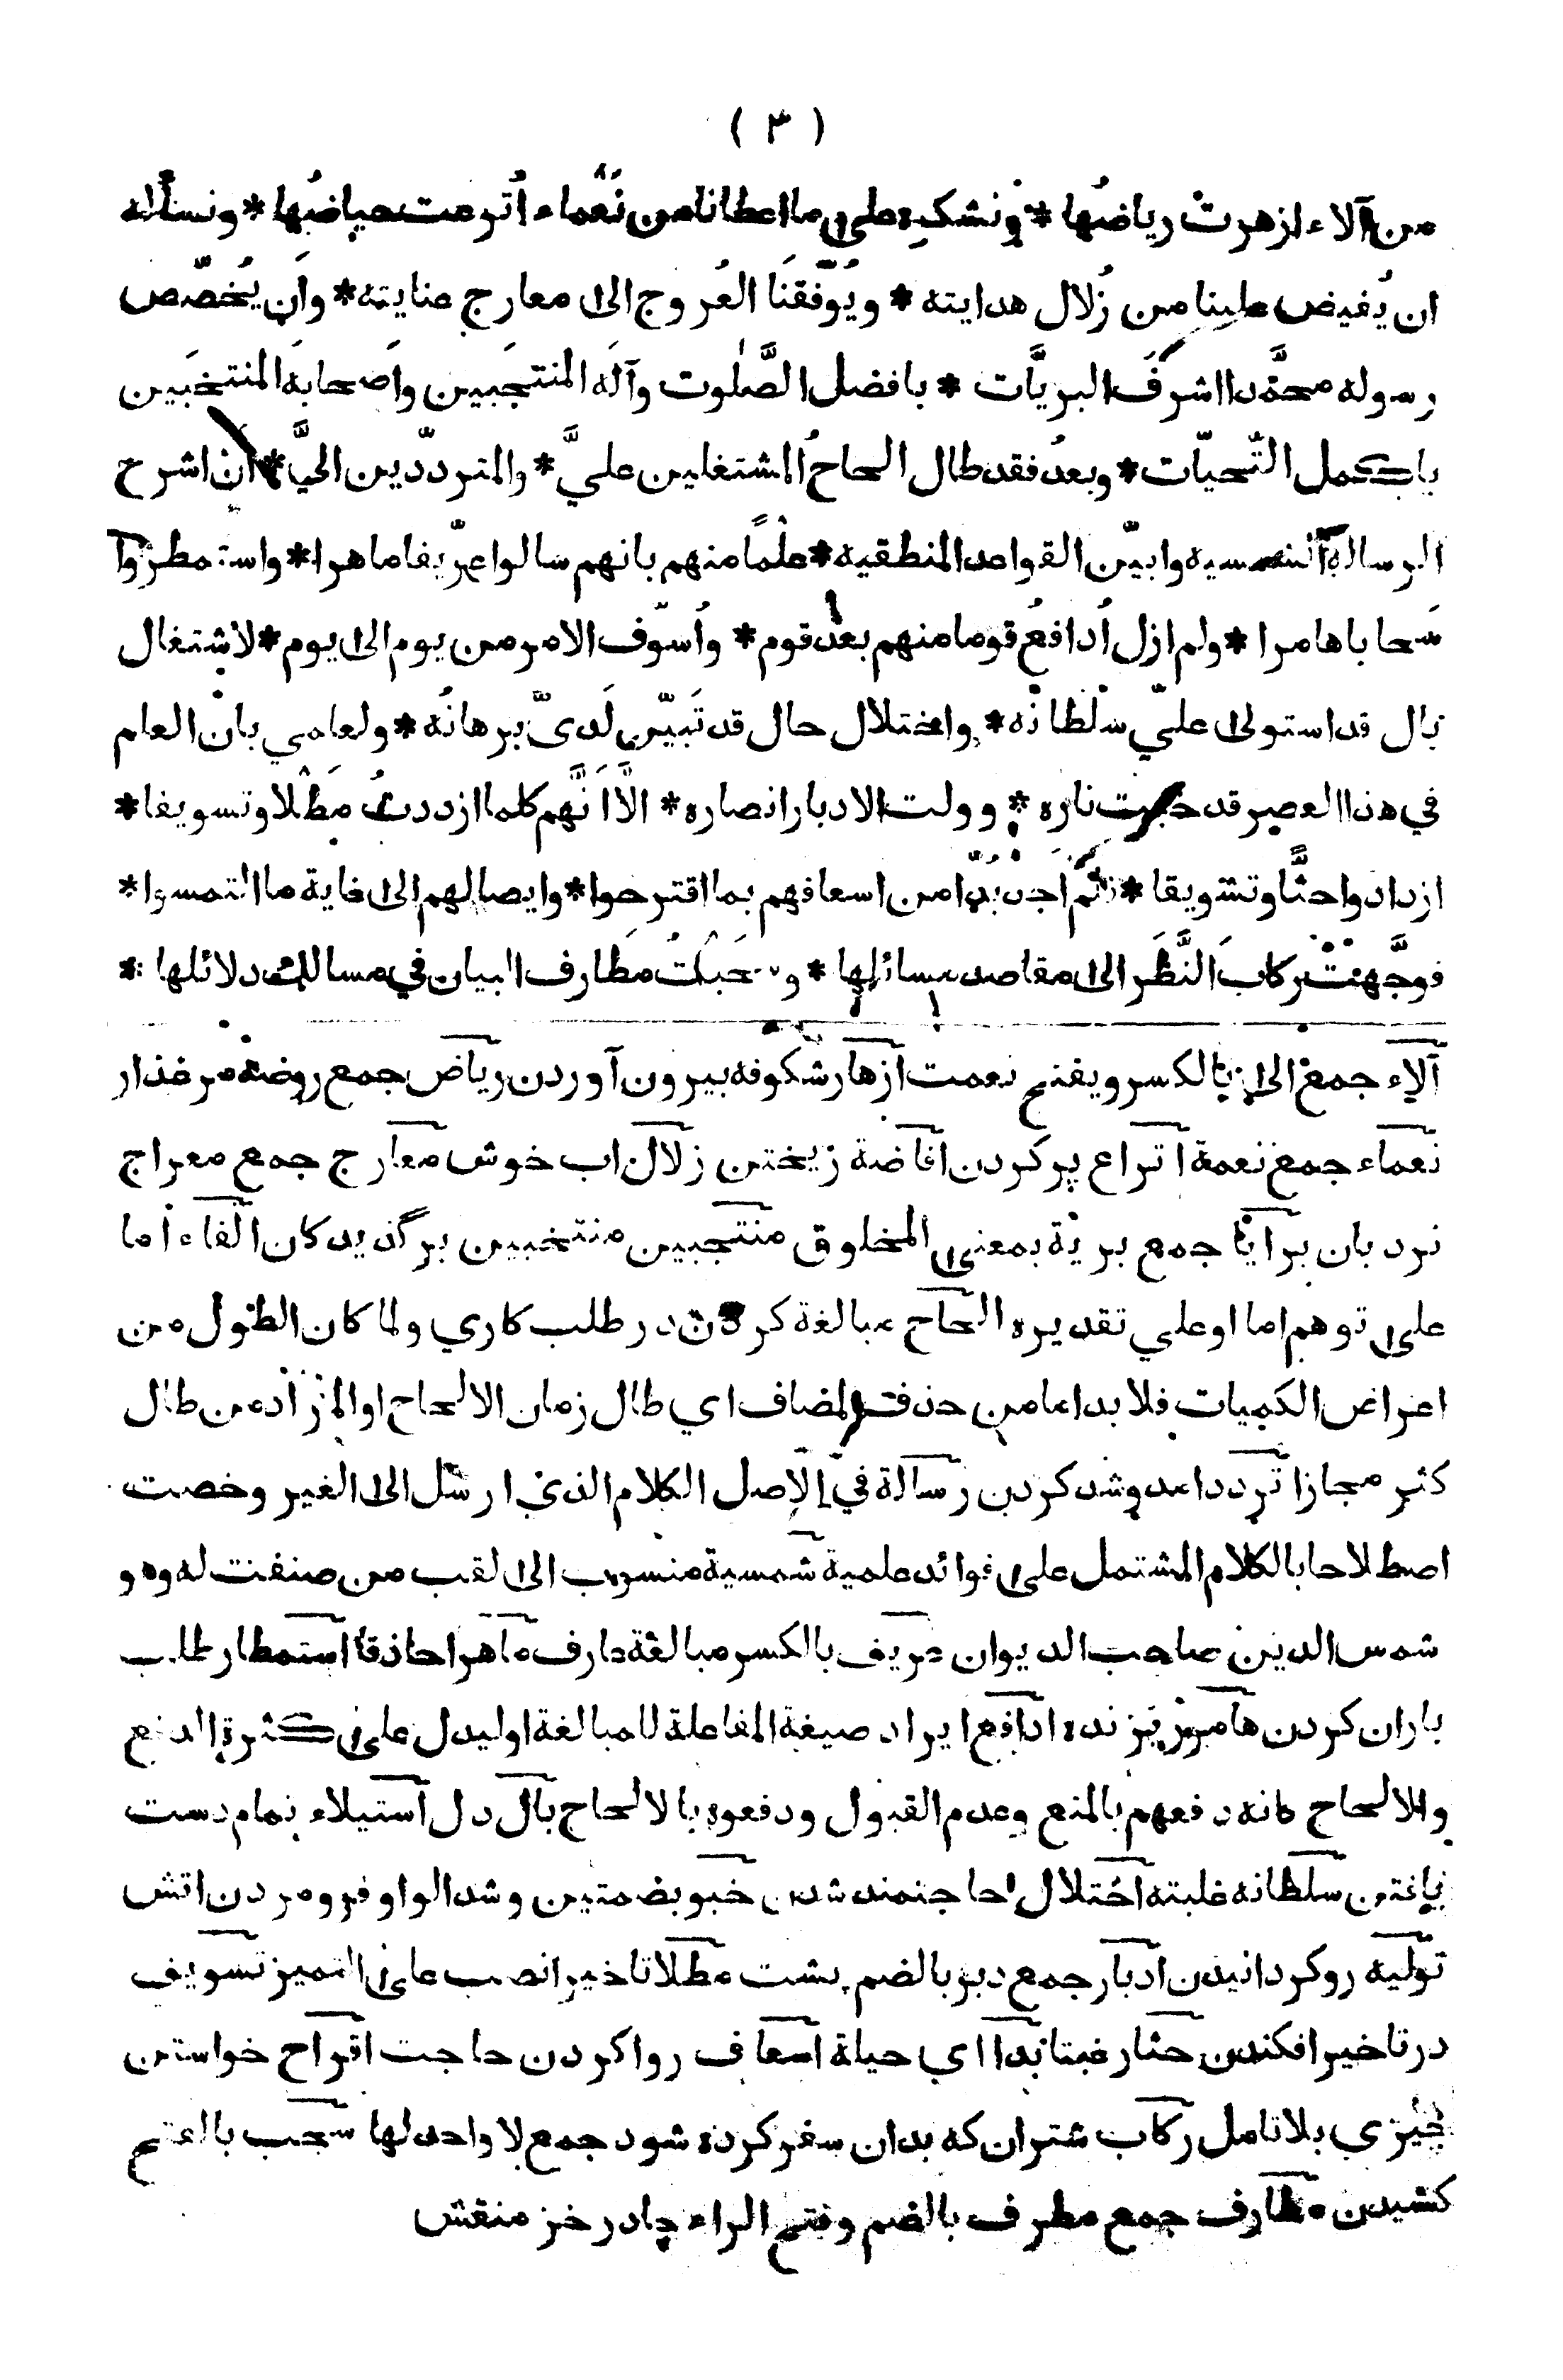 ( ٣ )
من آلاء ازهرتْ رياضُها * ونشكره على ما اعطانا من نَعماء اُترعت حياضُها * ونسألله
ان يُفيض علينا من زُلال هدايته * ويُوَفّقنَا العُروج الى معارج عنايته * وأن يُخصّص
رسوله محمَّدا اشرفَ البريَّات * بافضل الصَّلٰوت وآلَه المنتجَبين واَصحابَه المنتخَبين
باكمل التّحيّات * وبعدُ فقد طال الحاحُ المشتغلين عليَّ * والمتردّدين اليَّ * انْ اشرح
الرسالة الشمسية وابيّن القواعد المنطقيه * علْمًا منهم بانهم سالوا عرّيفا ماهرا * واستمطروا
سَحابا هامرا * ولم ازل اُدافعُ قوما منهم بعد قوم * واُسوّف الامر من يوم الى يوم * لاشتغال
بال قد استولى عليّ سلْطانُه * واختلال حال قد تَبيّن لَدىّ برهانُه * ولعلمي بانّ العلم
في هذا العصر قد خبت ناره * وولت الادبار انصاره * الَّا اَنَّهم كلما ازددتُ مَطْلا وتسويفا *
ازدادوا حثًّا وتشويقا * فلم اجد بُدّا من اسعافهم بما اقترحوا * وايصالهم الى غاية ما التمسوا *
فوجَّهتْ ركابَ النَّظَر الى مقاصد مسائلها * وسَحَبْتُ مَطارف البيان في مسالك دلائلها *
آلاء جمع الى بالكسر وبفتح نعمت ازهار شكوفه بيرون آوردن رياض جمع روضة مرغذار
نعماء جمع نعمة اتراع پر كردن افاضة ريختن زلال اب خوش معارج جمع معراج
نردبان برايا جمع برية بمعنى المخلوق منتجبين منتخبين برگذيدكان الفاء اما
على توهم اما او علي تقديره الحاح مبالغة كردن در طلب كاري ولما كان الطول من
اعراض الكميات فلا بد اما من حذف المضاف اي طال زمان الالحاح او المراد من طال
كثر مجازا تردد امد وشد كردن رسالة في الاصل الكلام الذي ارسل الى الغير وخصت
اصطلاحا بالكلام المشتمل على فوائد علمية شمسية منسوب الى لقب من صنفت له وهو
شمس الدين صاحب الديوان عريف بالكسر مبالغة عارف ماهرا حاذقا استمطار طلب
باران كردن هامر ريزنده ادافع ايراد صيغة المفاعلة للمبالغة او ليدل على كثرة الدفع
والالحاح كانه دفعهم بالمنع وعدم القبول ودفعوه بالالحاح بال دل استيلاء بتمام دست
يافتن سلطانه غلبته اختلال احاجتمند شدن خبو بضمتين وشد الواو فرو مردن اتش
تولية رو كردانيدن ادبار جمع دبر بالضم پشت مطلا تاخيرا نصب على التميز تسويف
در تاخير افكندن حثا رغبتا بدا اي حياة اسعاف روا كردن حاجت اقراح خواستن
چيزي بلا تامل ركاب شتران كه بدان سفر كرده شود جمع لا واحد لها سحب بالفتح
كشيدن مطارف جمع مطرف بالضم وفتح الراء چادر خز منقش